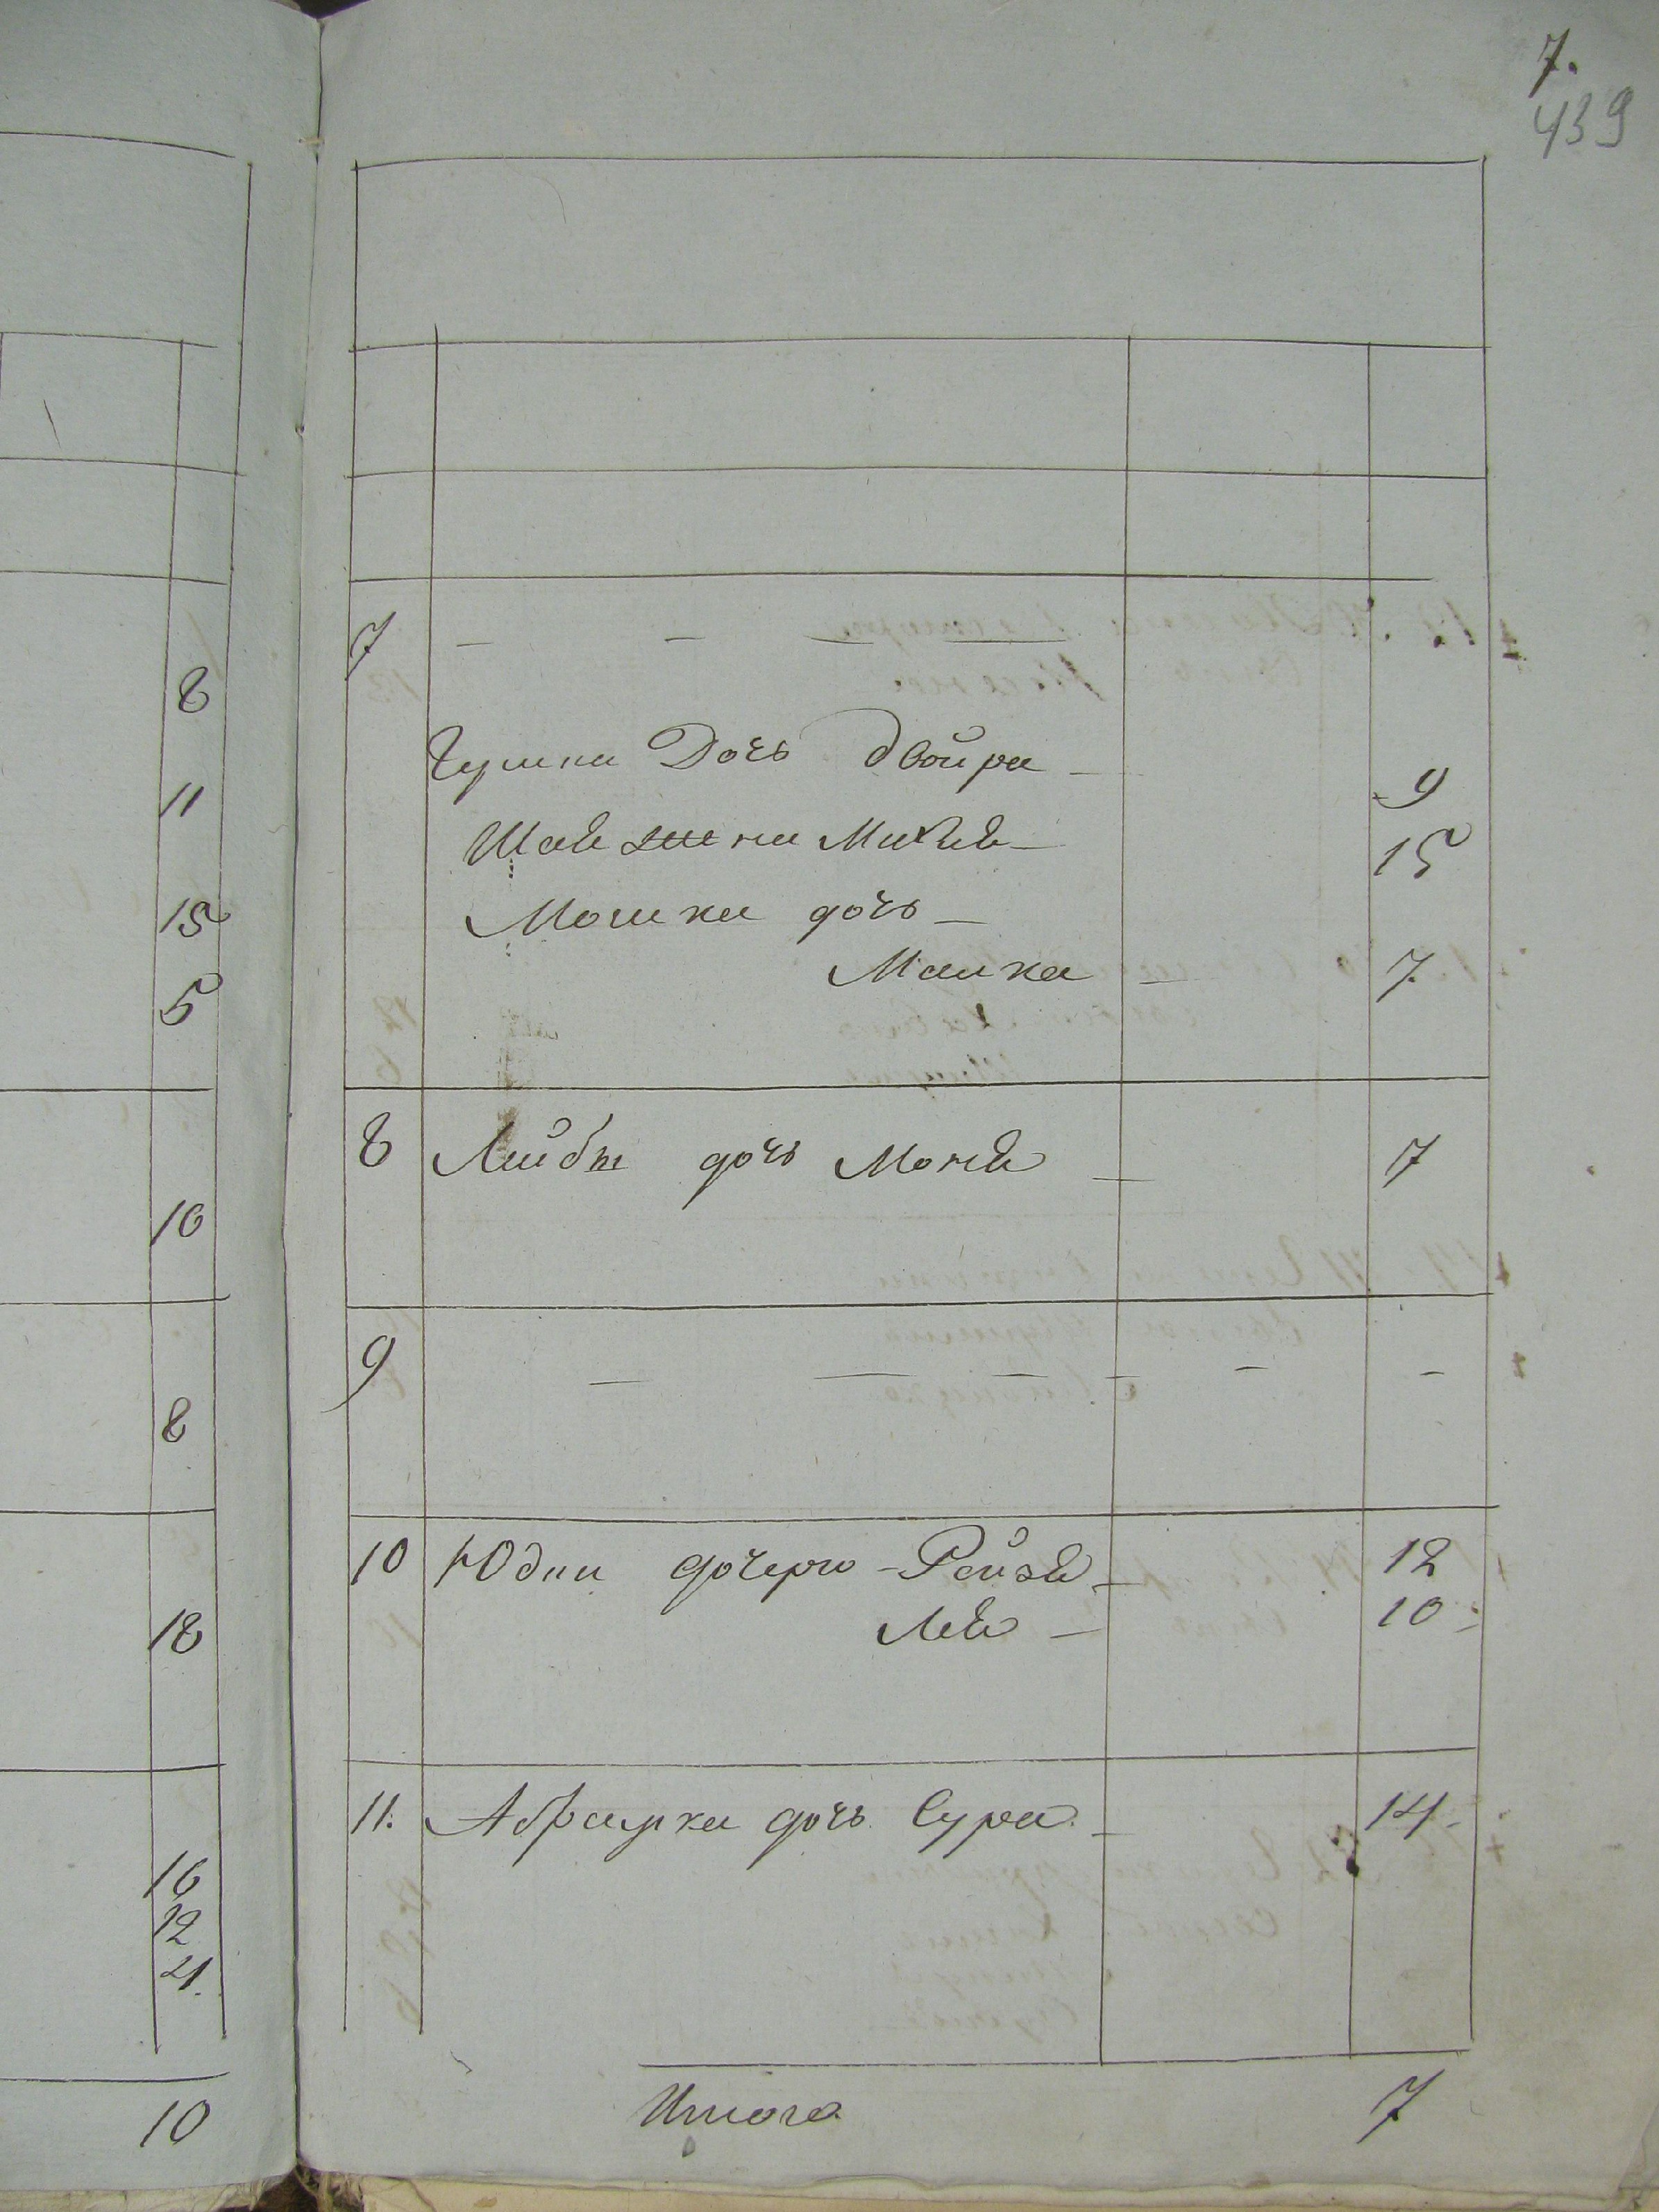 7.
439
8
11
15
5
10
8
18
16
12
21.
10
7 — — — —
Гершки Дочь двойра — 9
15
Мошки дочь —
Малка — 7
8 Лейбы дочь Моня — 7
9 — — — — — —
10 Юдки дочери - Рейзя — 12
Лея — 10
11. Абрамка дочь Сура — 14
Итого 7